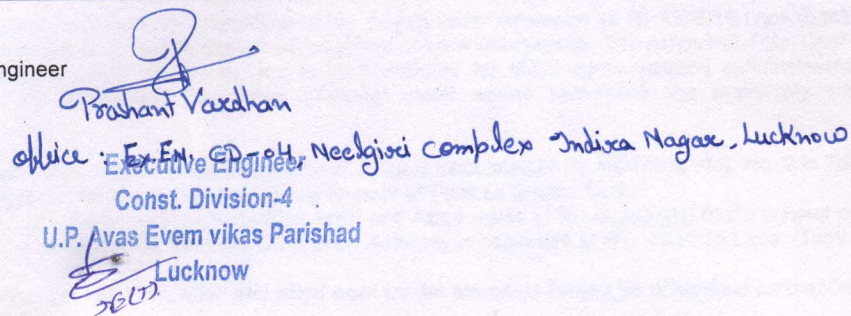 ngineer
Prashant Vardhan
office : Ex.EN, CD-04, Neelgiri complex Indira Nagar, Lucknow
Executive Engineer
Const. Division-4
U.P. Avas Evem vikas Parishad
Lucknow